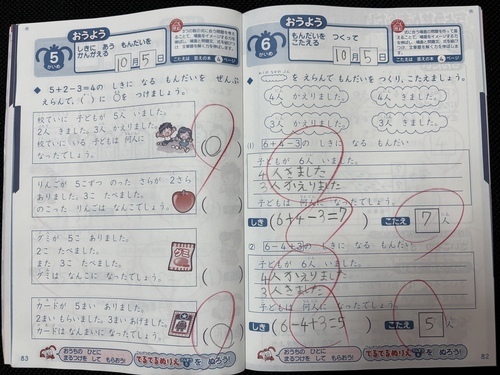 おうよう
5
かいめ
しきに あう もんだいを
かんがえる
10月5日
こたえは 答えの本 4ページ
◆ 5+2-3=4の しきに なる もんだいを ぜんぶ
えらんで、( )に ○を つけましょう。
校ていに 子どもが 5人 いました。
2人 きました。3人 かえりました。
校ていに いる 子どもは 何人に
なったでしょう。
(○)
りんごが 5こずつ のった さらが 2さら
ありました。3こ たべました。
のこった りんごは なんこでしょう。
( )
グミが 5こ ありました。
2こ たべました。
また 3こ たべました。
グミは なんこに なったでしょう。
( )
カードが 5まい ありました。
2まい もらいました。3まい あげました。
カードは なんまいに なったでしょう。
(○)
83
おうちの ひとに
まるつけを して もらおう!
てるてるぬりえ 5 を ぬろう!
おうよう
6
かいめ
もんだいを つくって
こたえる
10月5日
こたえは 答えの本 4ページ
を えらんで もんだいを つくり、こたえましょう。
4人 かえりました。
4人 きました。
3人 きました。
3人 かえりました。
(1) 6+4-3の しきに なる もんだい
子どもが 6人 いました。
4人きました
3人かえりました
子どもは 何人に なったでしょう。
しき (6+4-3=7)
こたえ 7人
(2) 6-4+3の しきに なる もんだい
子どもが 6人 いました。
4人かえりました
3人きました
子どもは 何人に なったでしょう。
しき (6-4+3=5)
こたえ 5人
おうちの ひとに
まるつけを して もらおう!
てるてるぬりえ 6 を ぬろう!
82